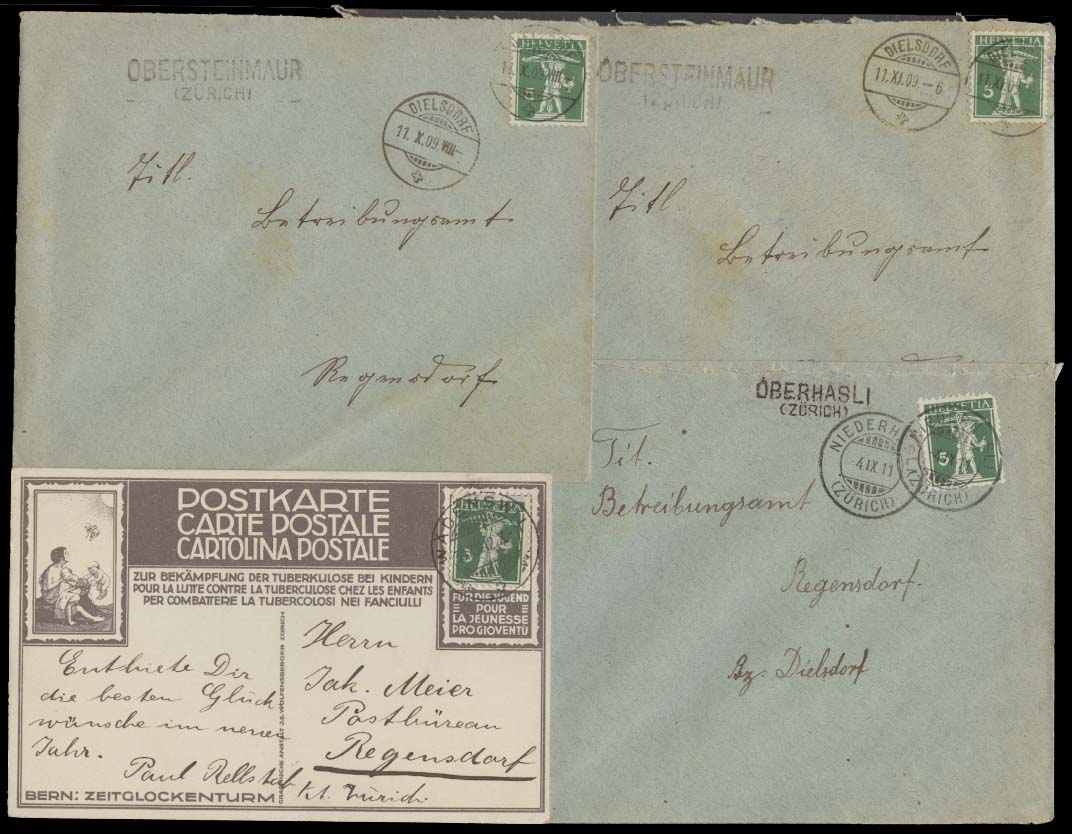 OBERSTEINMAUR
(ZÜRICH)
HELVETIA
5
11.X.09.VIII-
DIELSDORF
11.X.09.VIII-
Titl.
Betreibungsamt
Regensdorf
OBERSTEINMAUR
(ZÜRICH)
DIELSDORF
11.XI.09.-6
HELVETIA
5
11.XI.09
Titl.
Betreibungsamt
OBERHASLI
(ZÜRICH)
NIEDERH
-4.IX.11
(ZÜRICH)
HELVETIA
5
(ZÜRICH)
Tit.
Betreibungsamt
Regensdorf.
Bz. Dielsdorf
POSTKARTE
CARTE POSTALE
CARTOLINA POSTALE
ZUR BEKÄMPFUNG DER TUBERKULOSE BEI KINDERN
POUR LA LUTTE CONTRE LA TUBERCULOSE CHEZ LES ENFANTS
PER COMBATTERE LA TUBERCOLOSI NEI FANCIULLI
5
FÜR DIE JUGEND
POUR
LA JEUNESSE
PRO GIOVENTÙ
Enthiete Dir
die besten Glück
wünsche im neuen
Jahr.
Paul Rellstab
BERN: ZEITGLOCKENTURM
GRAPHISCHE ANSTALT J.E. WOLFENSBERGER ZÜRICH
Herrn
Jak. Meier
Postbüreau
Regensdorf
Kt. Zürich